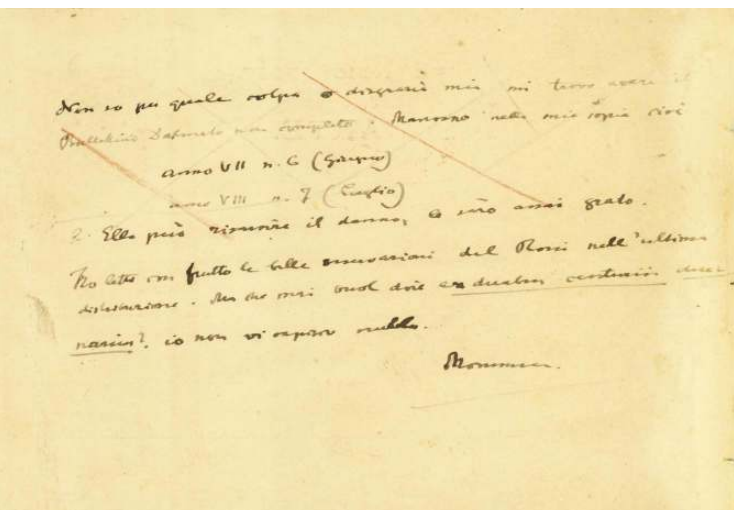 Non so per quale colpa o disgrazia mia mi trovo avere il
Bullettino Dalmato non completo. Mancano nella mia copia cioè
anno VII n. 6 (Giugno)
anno VIII n. 7 (Luglio)
Ella può risarcire il danno, Le sarò assai grato.
Ho letto con frutto le belle osservazioni del Rossi nell'ultima
distribuzione. Ma che mai vuol dire ex duabus centuriis duce
narius? io non vi capisco nulla.
Mommsen.